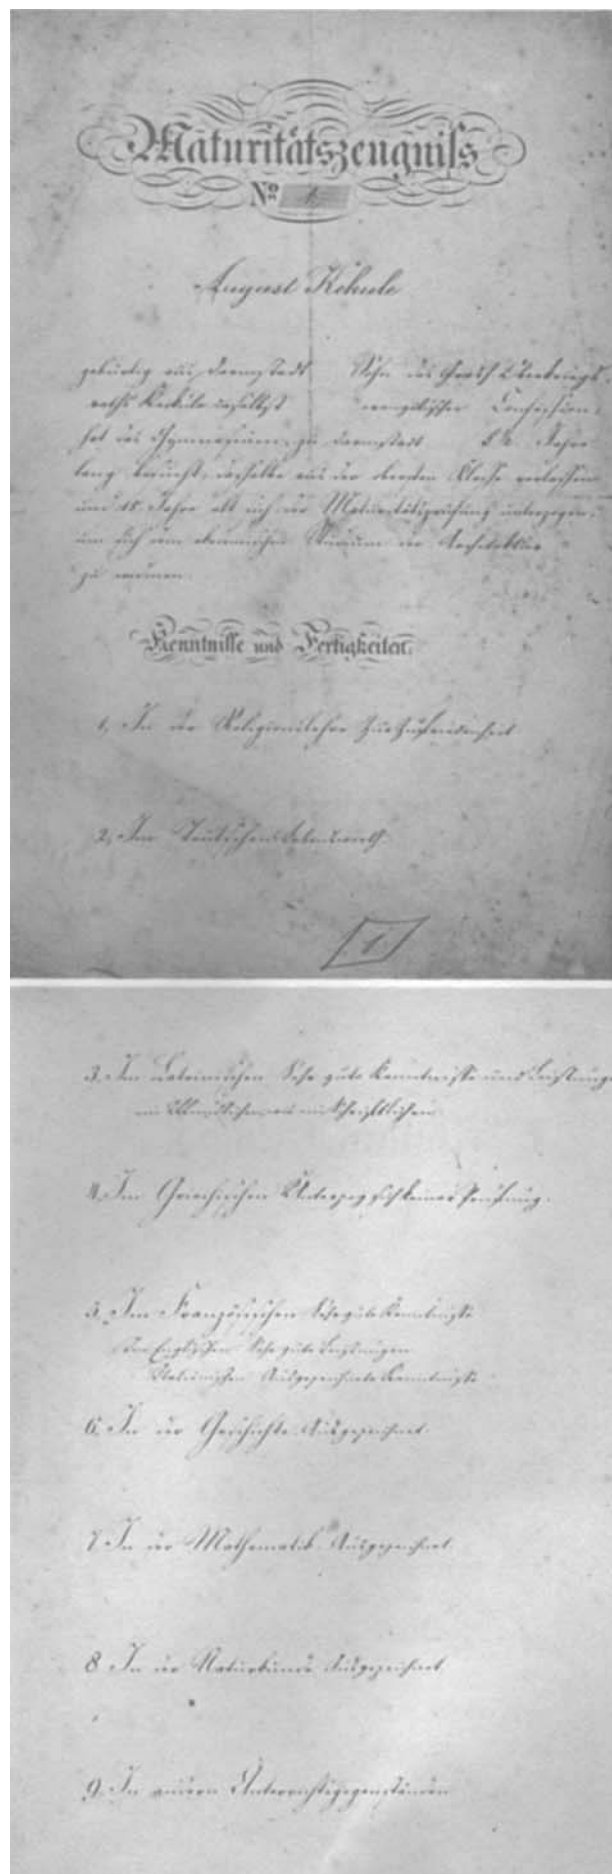 Maturitätszeugniſs
No 1.
August Kekule
gebürtig aus Darmstadt Sohn des Großh. Oberkriegs-
raths Kekule daselbst evangelischer Confession,
hat das Gymnasium zu Darmstadt 5 ½ Jahre
lang besucht, dasselbe aus der obersten Klasse verlassen
und 18 Jahre alt sich der Maturitätsprüfung unterzogen,
um sich dem akademischen Studium der Architektur
zu widmen.
Kenntniſse und Fertigkeiten.
1, In der Religionslehre Zur Zufriedenheit
2, Im Deutschen Lobenswerth
1.
3. Im Lateinischen Sehr gute Kenntnisse und Leistungen
im Mündlichen wie im Schriftlichen.
4. Im Griechischen Unterzog sich keiner Prüfung.
5. Im Französischen Sehr gute Kenntnisse
Im Englischen Sehr gute Leistungen
Italienischen Ausgezeichnete Kenntnisse
6. In der Geschichte Ausgezeichnet.
7. In der Mathematik Ausgezeichnet
8 In der Naturkunde Ausgezeichnet
9. In andern Unterrichtsgegenständen